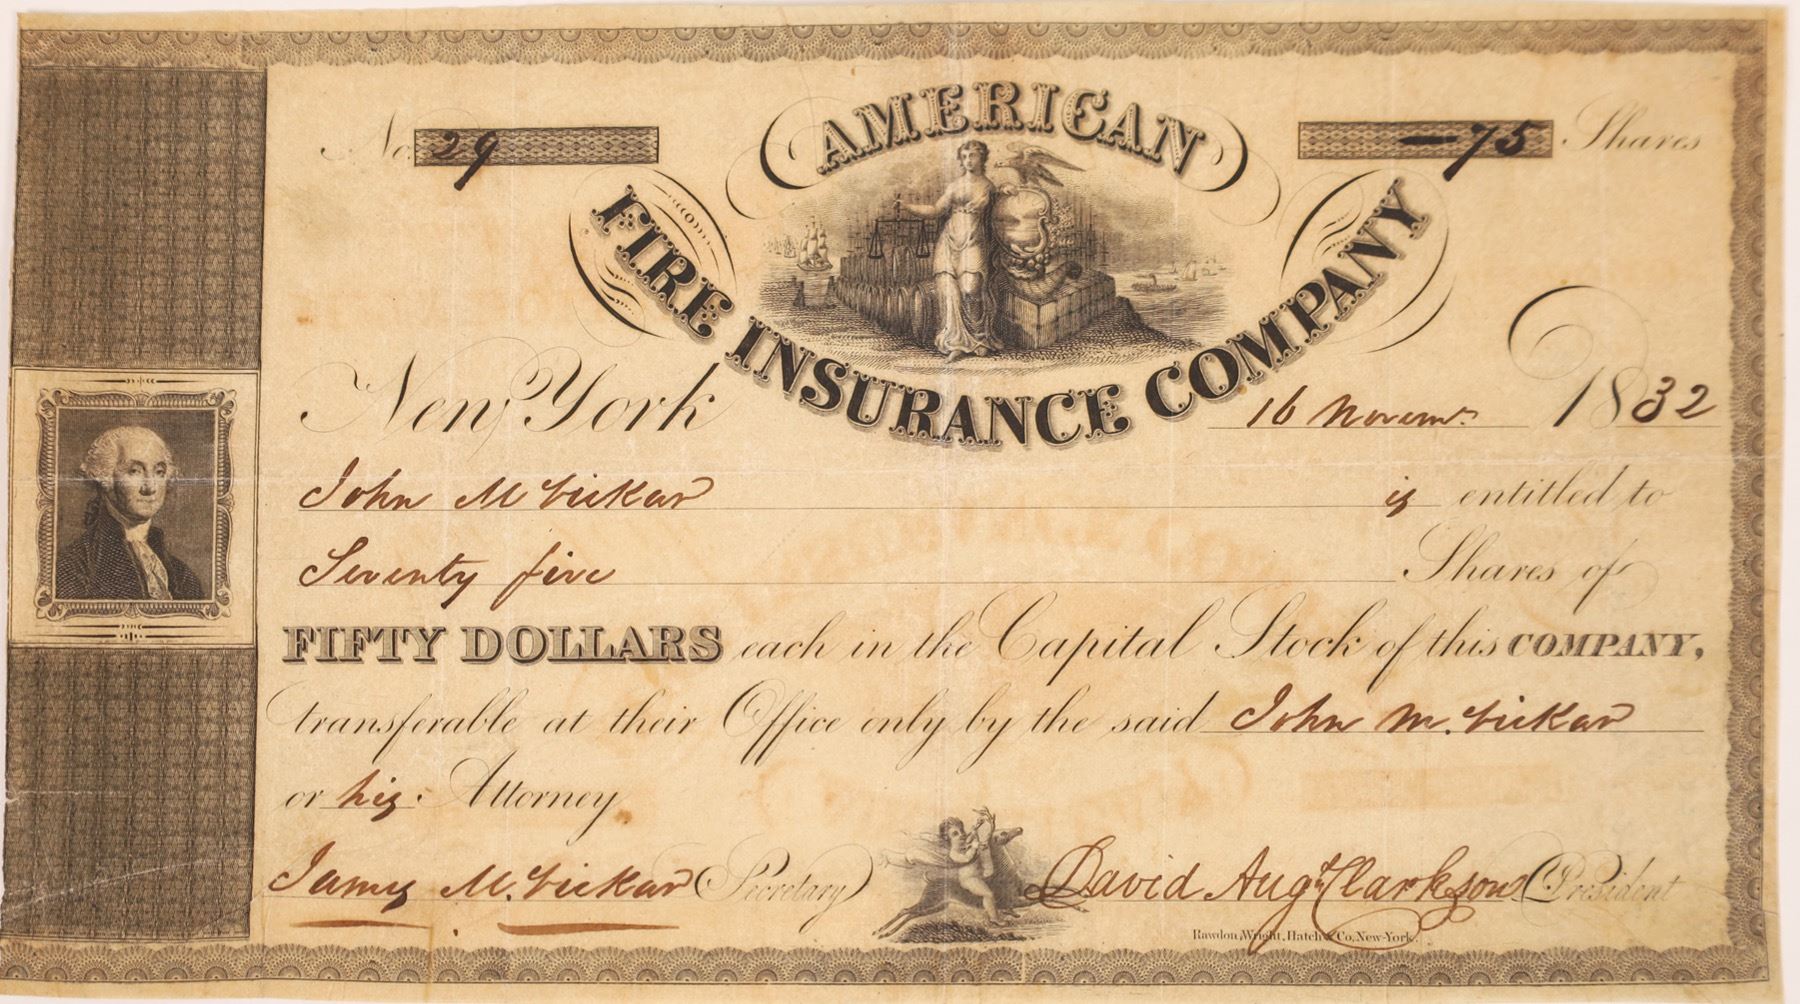 No. 29
75 Shares
AMERICAN
FIRE INSURANCE COMPANY
New York 16 Novemr. 1832
John McVickar is entitled to
Seventy five Shares of
FIFTY DOLLARS each in the Capital Stock of this COMPANY,
transferable at their Office only by the said John McVickar
or his Attorney
James McVickar Secretary David Augt Clarkson President
Rawdon, Wright, Hatch & Co, New-York.